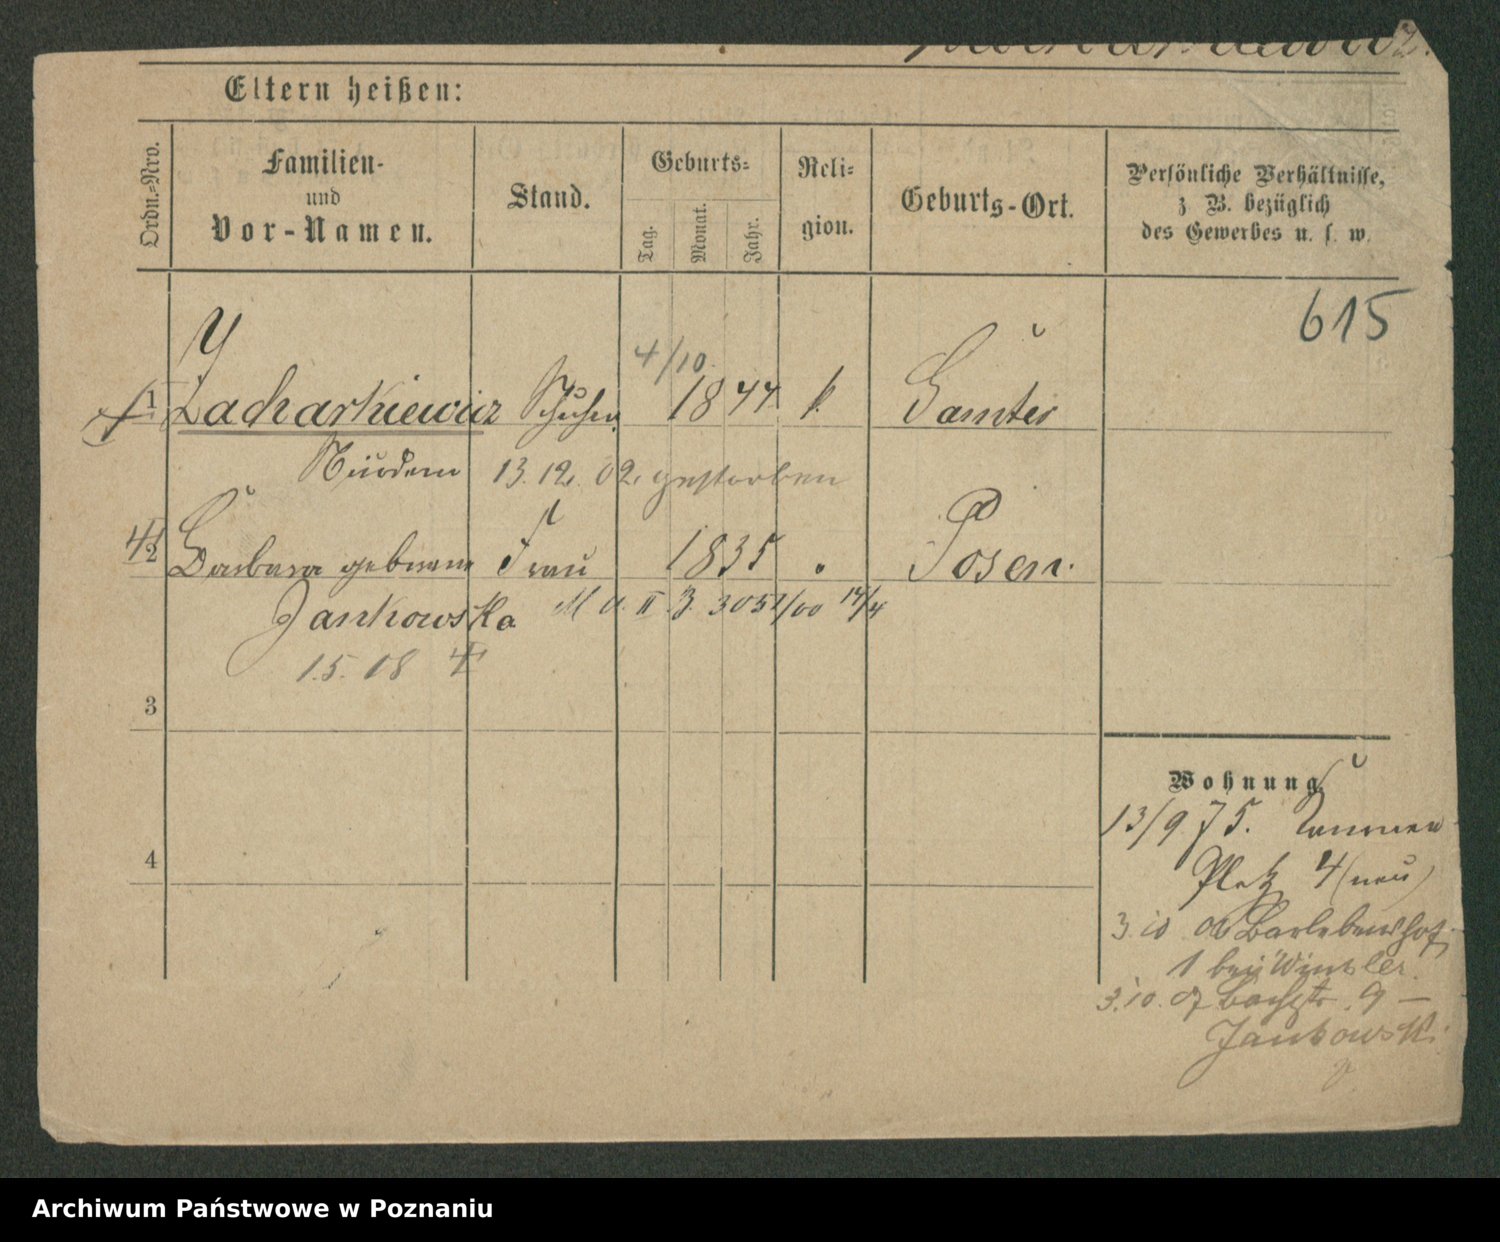 Eltern heißen:
Ordn.-Nro.
Familien-
und
Vor-Namen.
Stand.
Geburts-
Tag.
Monat.
Jahr.
Reli-
gion.
Geburts-Ort.
Persönliche Verhältnisse,
z. B. bezüglich
des Gewerbes u. s. w.
615
4/10
1 Zacharkiewicz 1844 k. Samter
13. 12. 02. gestorben
2 Barbara geborene Frau 1835 " Posen.
Jankowska
1.5. 18
3
Wohnung
13/9 75.
Platz 4 (neu)
4
3.10 06 Barlebenshof
1 bei Winkler.
3.10. 07 9 —
Jankowski
Archiwum Państwowe w Poznaniu